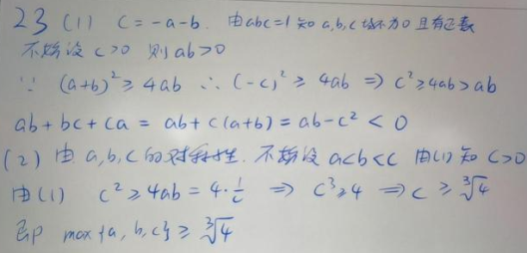 23 (1) c=-a-b. 由abc=1知a,b,c均不为0且有正数
不妨设c>0 则ab>0
∵ (a+b)²≥4ab ∴ (-c)²≥4ab ⇒ c²≥4ab>ab
ab+bc+ca = ab+c(a+b) = ab-c² < 0
(2) 由a,b,c的对称性. 不妨设a<b<c 由(1)知c>0
由(1) c²≥4ab=4·1/c ⇒ c³≥4 ⇒ c≥∛4
即 max{a,b,c}≥∛4